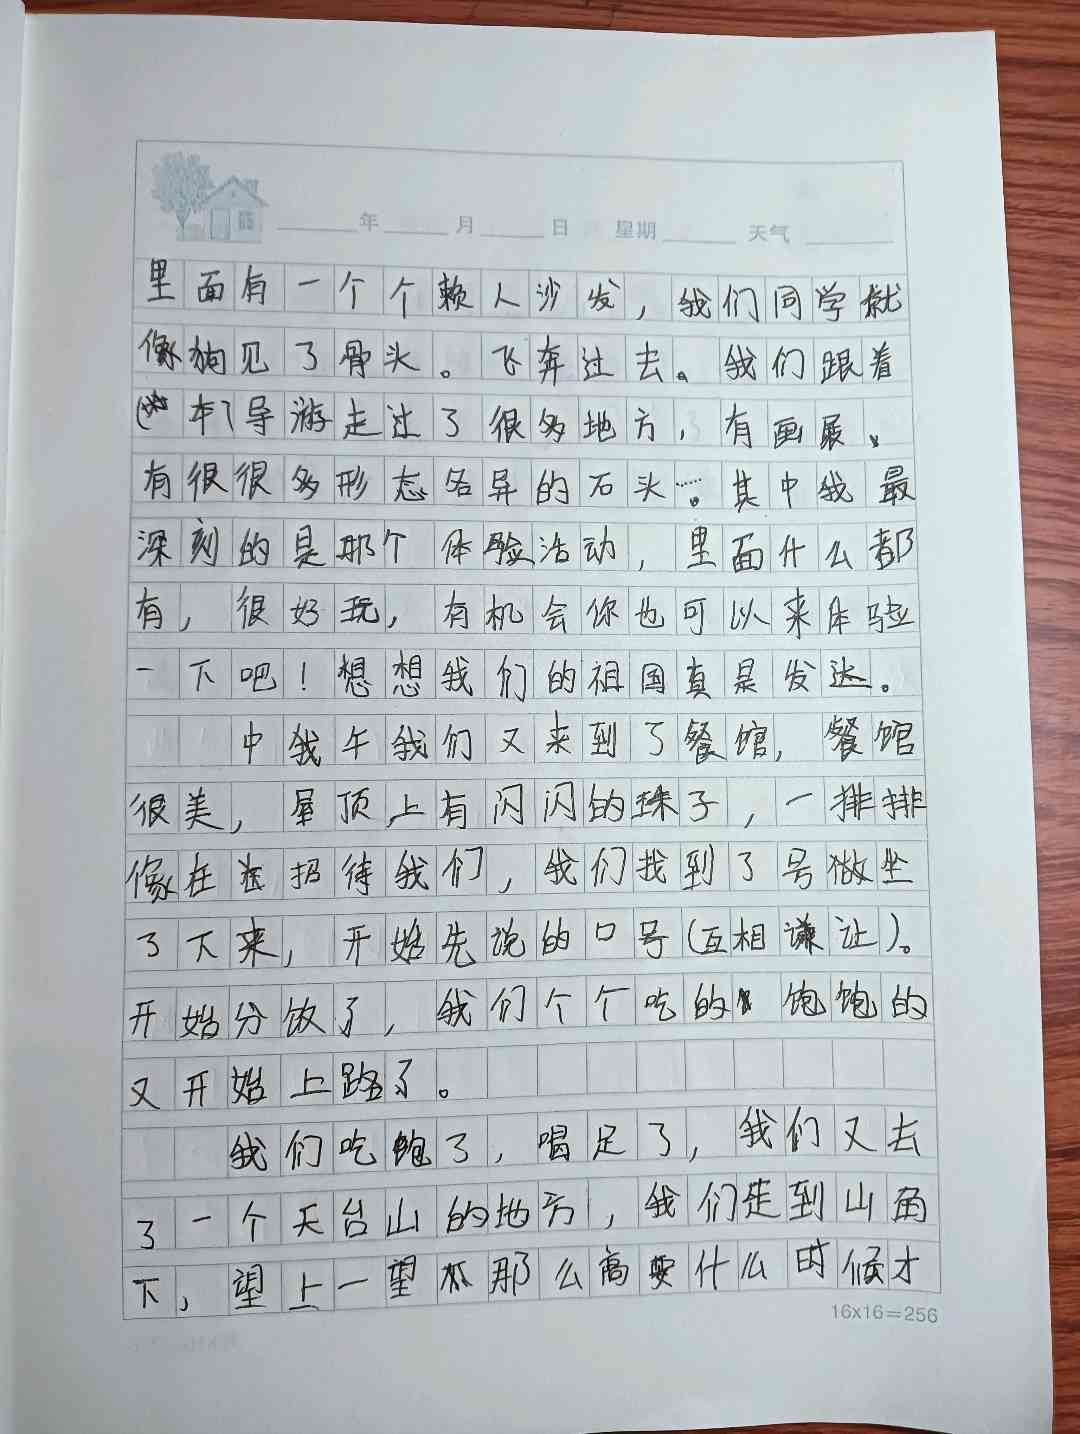 年 月 日 星期 天气
里面有一个个赖人沙发，我们同学就
像狗见了骨头。飞奔过去。我们跟着
导游走过了很多地方，有画展、
有很很多形态各异的石头……。其中我最
深刻的是那个体验活动，里面什么都
有，很好玩，有机会你也可以来体验
一下吧！想想我们的祖国真是发达。
中我午我们又来到了餐馆，餐馆
很美，屋顶上有闪闪的珠子，一排排
像在招待我们，我们找到了号做坐
了下来，开始先说的口号(互相谦让)。
开始分饭了，我们个个吃的饱饱的
又开始上路了。
我们吃饱了，喝足了，我们又去
了一个天台山的地方，我们走到山角
下，望上一望那么高要什么时候才
16x16=256